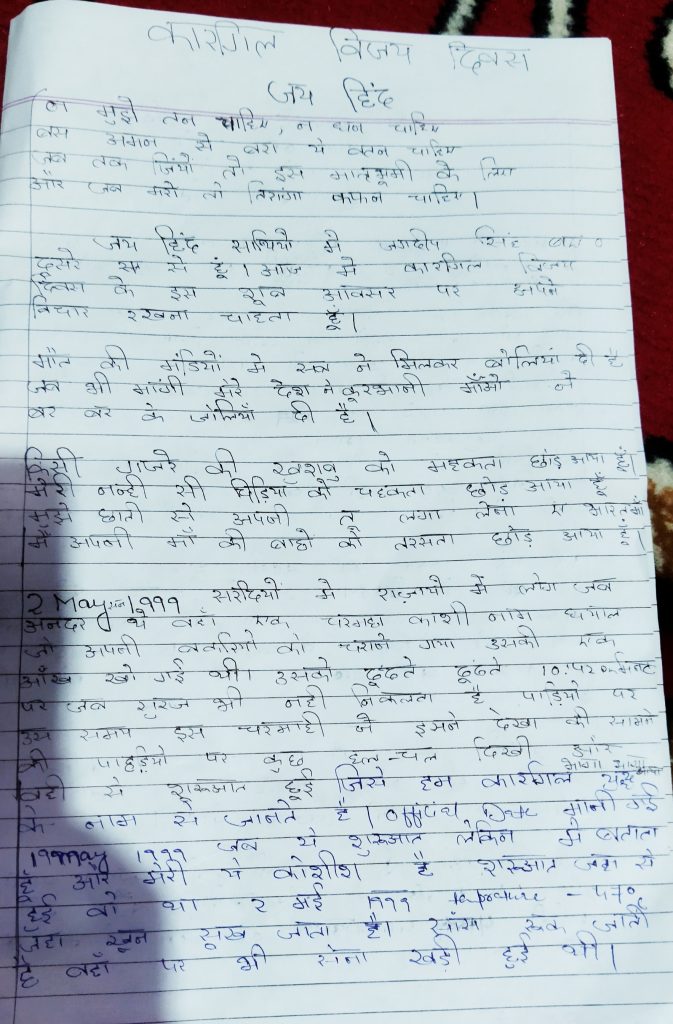 कारगिल विजय दिवस
जय हिंद
न मुझे तन चाहिए, न धन चाहिए
बस अमन से भरा ये वतन चाहिए
जब तक जियों तो इस मातृभूमी के लिए
और जब मरो तो तिरंगा कफन चाहिए।
जय हिंद साथियों मे जगदीप सिंह
दूसरे से हूं। आज मे कारगिल विजय
दिवस के इस शूब अवसर पर अपने
विचार रखना चाहता हूँ।
मौत की मंडियों मे सब ने मिलकर बोलियां दी है
जब भी मांगी मेरे देश ने कूरबानी माँओ ने
बर बर के जोलियाँ दी है।
किसी गजरे की खुशबु को महकता छोड़ आया हूँ।
मेरी नन्ही सी चिड़िया को चहकता छोड़ आया हूँ
मुझे छाती से अपनी तू लगा लेना ए भारत माँ
मैं अपनी माँ की बाहो को तरसता छोड़ आया हूँ।
2 May सन 1999 सरदियों मे में लोग जब
अनदर थे वहाँ एक चरवाहा काशी नाम
जो अपनी बकरियों को चराने गया उसकी एक
खो गई थी। उसको ढूढते ढूढते 10:
पर जब सुरज भी नही निकलता है पाड़ियो पर
उस समय इस चरवाही ने इसने देखा की सामने
की पाहड़ियो पर कुछ हल-चल दिखी और
यही से शूरूआत हूई जिसे हम कारगिल युद्ध
के नाम से जानते है। मानी गई
May 1999 जब ये शुरूआत लेकिन मे बताता
हूँ और मेरी ये कोशीश है शरूआत जहा से
हूई वो था 2 मई 1999 - 470
जहा खून सूख जाता है। सांस रूक जाती
है वहाँ पर भी सेना खड़ी हुई थी।